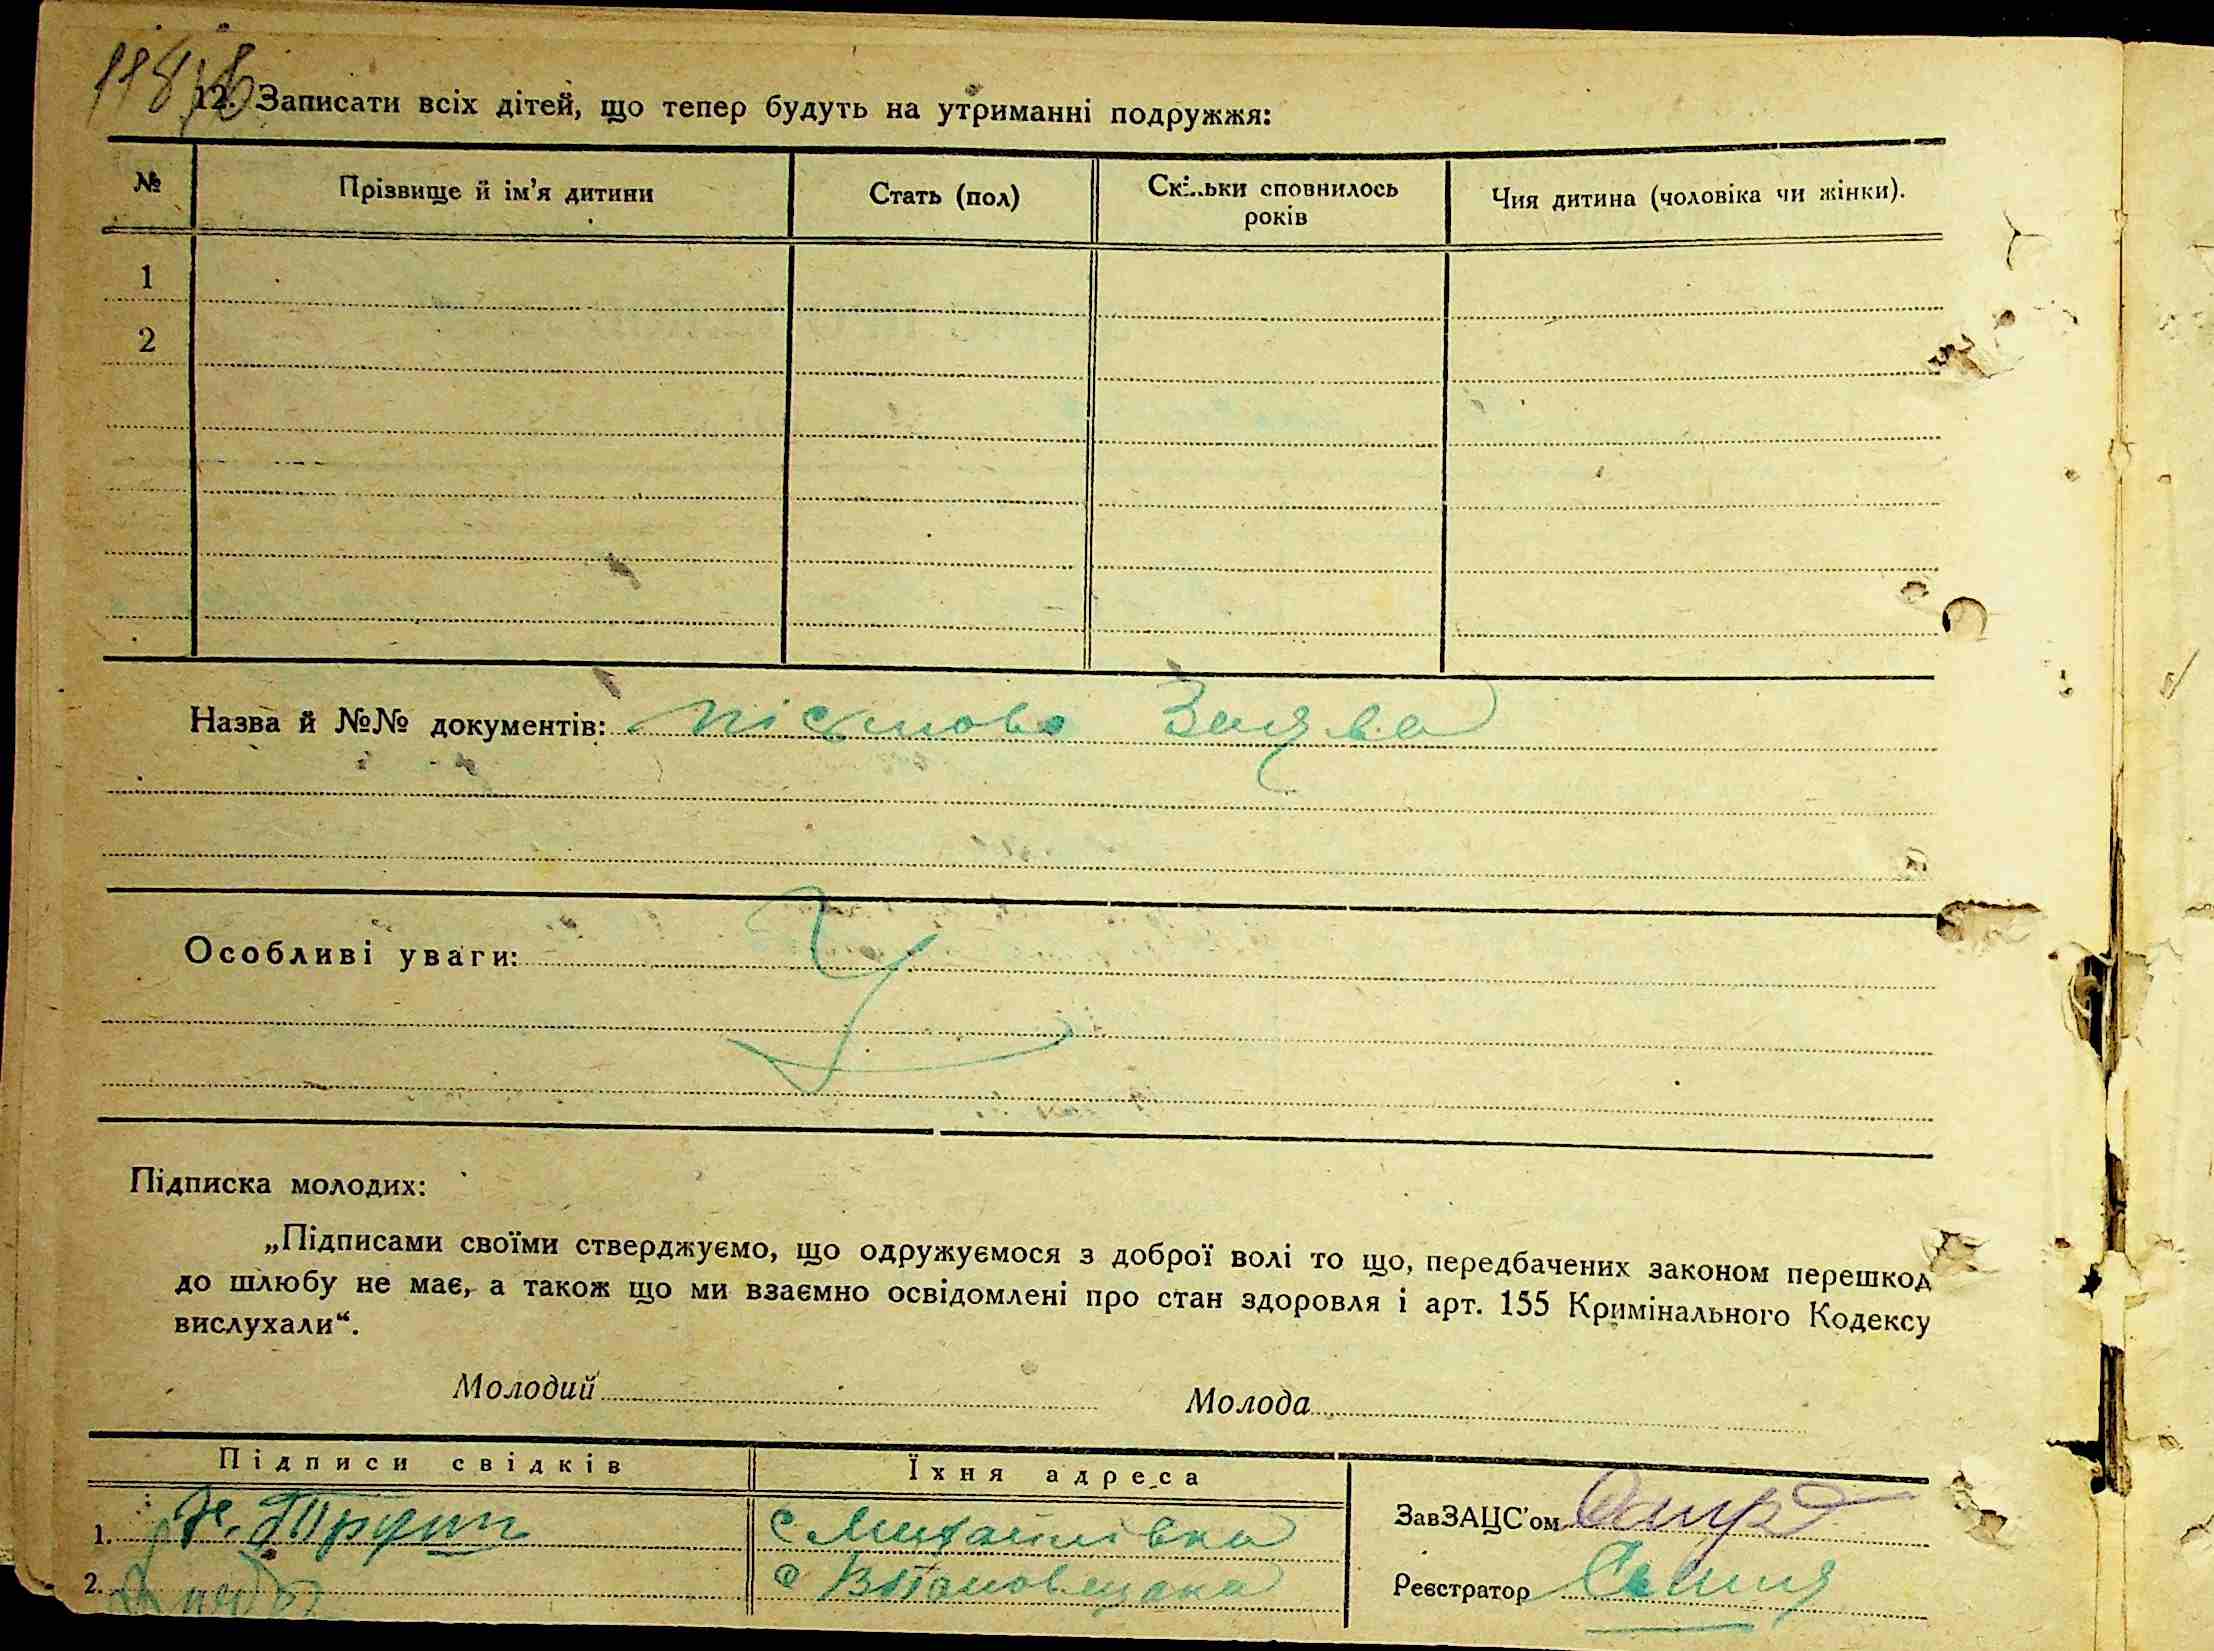 12. Записати всіх дітей, що тепер будуть на утриманні подружжя:
№ Прізвище й ім’я дитини Стать (пол) Скільки сповнилось років Чия дитина (чоловіка чи жінки).
1
2
Назва й №№ документів: пісьмова Заява
Особливі уваги:
Підписка молодих:
„Підписами своїми стверджуємо, що одружуємося з доброї волі то що, передбачених законом перешкод
до шлюбу не має, а також що ми взаємно освідомлені про стан здоровля і арт. 155 Кримінального Кодексу
вислухали“.
Молодий Молода
Підписи свідків Їхня адреса
ЗавЗАЦС’ом
1. с Михайлівка
2.
Реєстратор